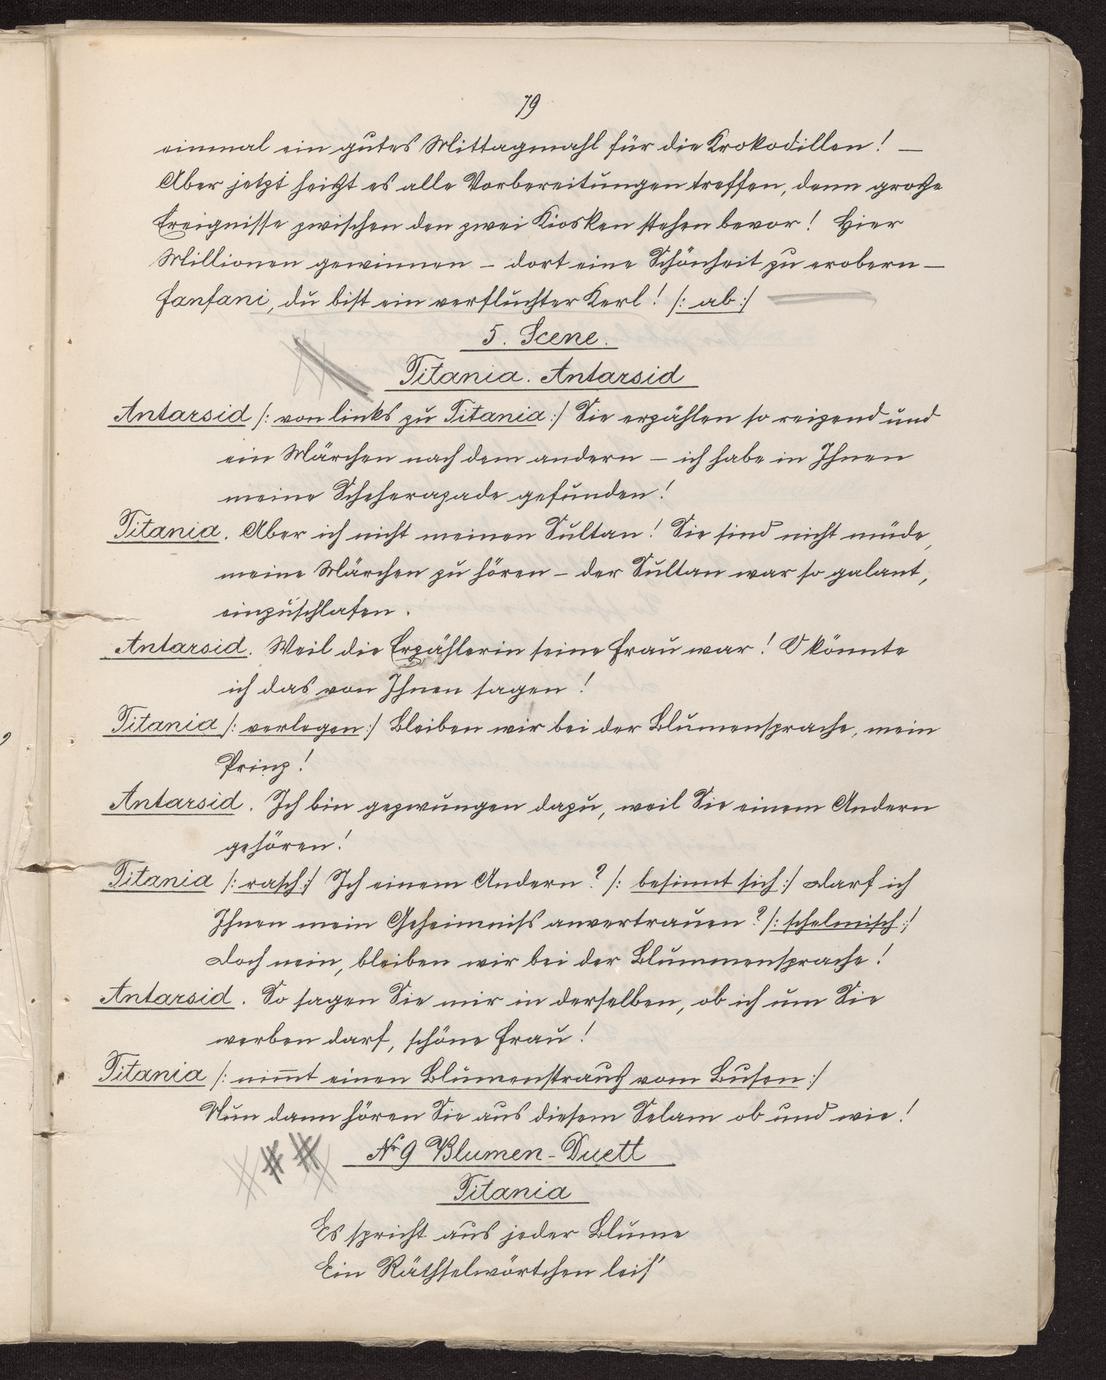 79
einmal ein gutes Mittagmahl für die Krokodillen! —
Aber jetzt heißt es alle Vorbereitungen treffen, denn große
Ereignisse zwischen den zwei Kiosken stehen bevor! Hier
Millionen gewinnen – dort eine Schönheit zu erobern –
Fanfani, du bist ein verfluchter Kerl! /: ab :/
5. Scene.
Titania. Antarsid
Antarsid /: von links zu Titania :/ Sie erzählen so reizend und
ein Märchen nach dem andern – ich habe in Ihnen
meine Scheherazade gefunden!
Titania. Aber ich nicht meinen Sultan! Sie sind nicht müde,
meine Märchen zu hören – der Sultan war so galant,
einzuschlafen.
Antarsid. Weil die Erzählerin seine Frau war! O könnte
ich das von Ihnen sagen!
Titania /: verlegen :/ Bleiben wir bei der Blumensprache, mein
Prinz!
Antarsid. Ich bin gezwungen dazu, weil Sie einem Andern
gehören!
Titania /: rasch :/ Ich einem Andern? /: besinnt sich :/ Darf ich
Ihnen mein Geheimniß anvertrauen? /: schelmisch :/
Doch nein, bleiben wir bei der Blummensprache!
Antarsid. So sagen Sie mir in derselben, ob ich um Sie
werben darf, schöne Frau!
Titania /: nim̅t einen Blumenstrauß vom Busen :/
Nun dann hören Sie aus diesem Selam ob und wie!
No 9 Blumen-Duett
Titania
Es spricht aus jeder Blume
Ein Räthselwörtchen leis'